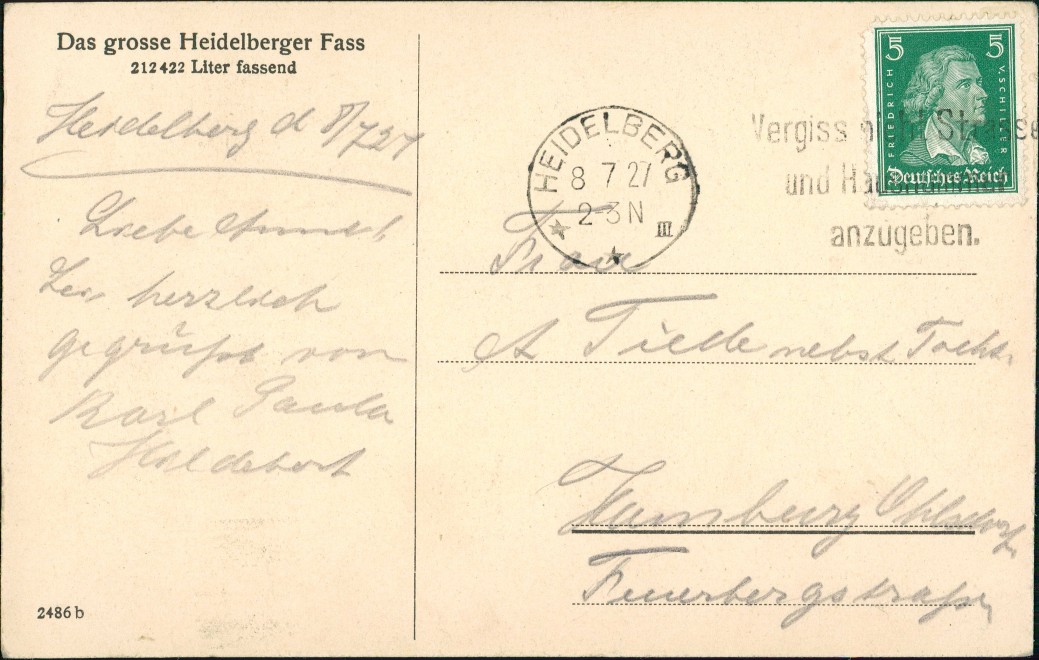 Das grosse Heidelberger Fass
212422 Liter fassend
Heidelberg d 8/7 27
Liebe
herzlich
gegrüßt von
Karl Paula
2486 b
HEIDELBERG
8 7 27
2-3 N
III
Vergiss nicht Strasse
und
anzugeben.
5 5
FRIEDRICH V. SCHILLER
Deutsches Reich
Frau
A Tielle nebst Tocht.
Hamburg Ohlsdorf
Feuerbergstraße